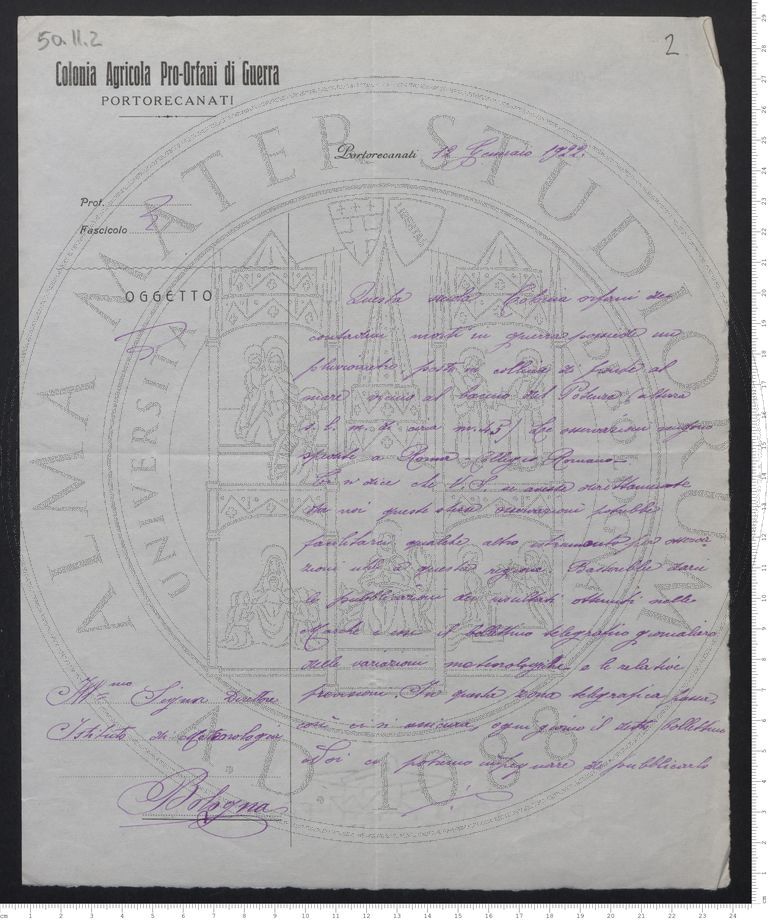 50.11.2
2
Colonia Agricola Pro-Orfani di Guerra
PORTORECANATI
Portorecanati 12 Gennaio 1922.
Prot.
Fascicolo 2
OGGETTO
Questa scuola Colonia orfani dei
contadini morti in guerra possiede un
pluviometro, posto in collina di fronte al
mare vicino al bacino del Potenza (altura
s. l. m. di circa m. 45) Le osservazioni vengono
spedite a Roma - Collegio Romano -
Ci si dice che V. S. se avesse direttamente
da noi queste stesse osservazioni potrebbe
facilitarci qualche altro istrumento per osserva-
zioni utili a questa regione. Basterebbe darci
le pubblicazioni dei risultati ottenuti nelle
Marche e con il bollettino telegrafico giornaliero
delle variazioni meteorologiche e le relative
previsioni. In questa zona telegrafica passa,
così ci si assicura, ogni giorno il detto bollettino
e noi ci potremo impegnare di pubblicarlo
Ill.mo Signor Direttore
Istituto di Meteorologia
Bologna
ALMA MATER STUDIORUM
UNIVERSITÀ
A.D. 1088
cm 1 2 3 4 5 6 7 8 9 10 11 12 13 14 15 16 17 18 19 20 21 22 23 24